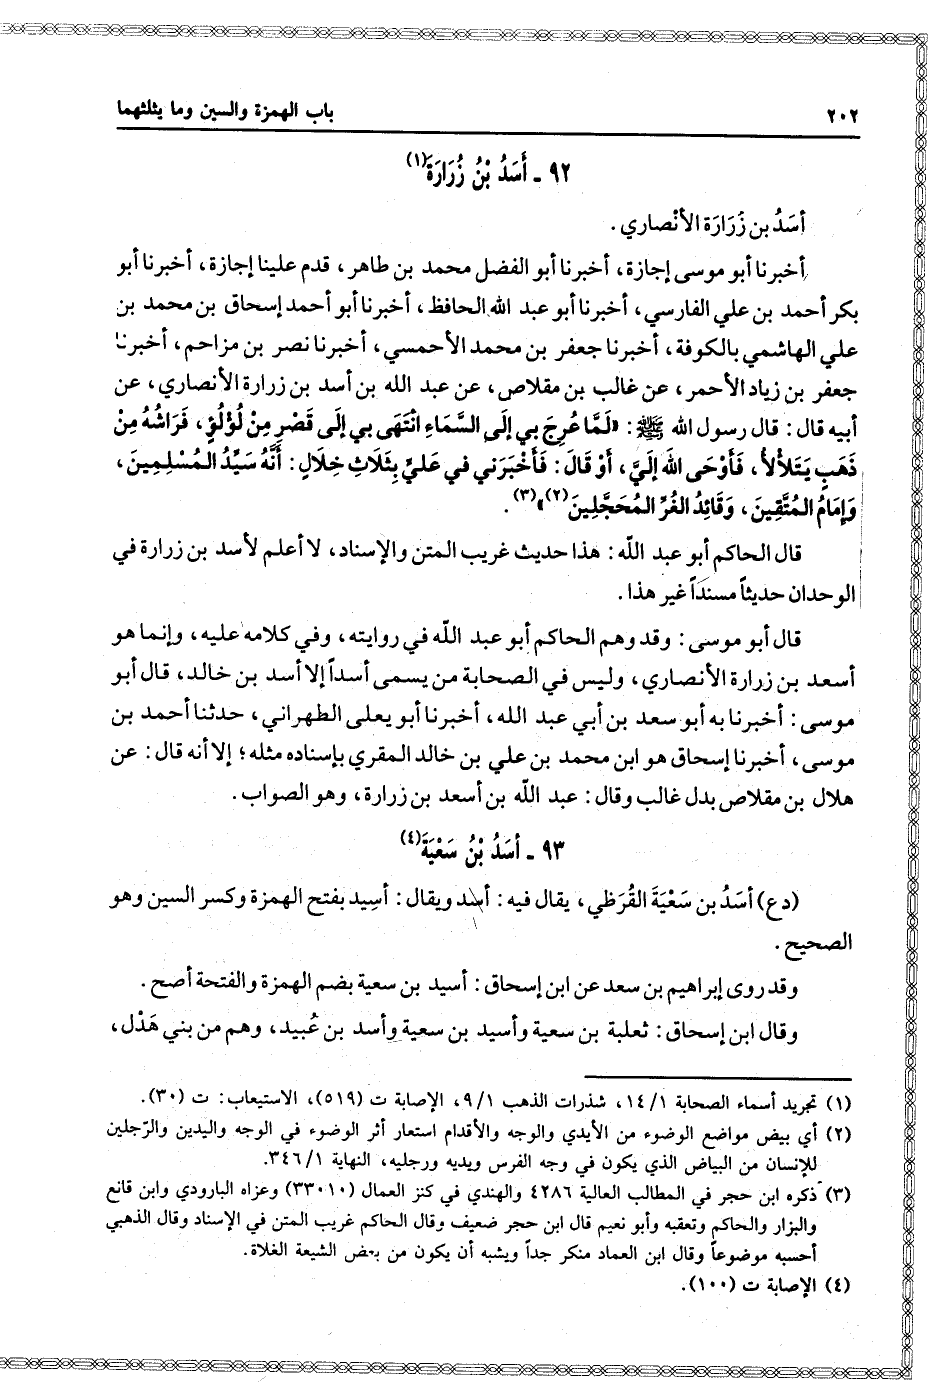 ٢٠٢ باب الهمزة والسين وما يثلثهما
٩٢ ـ أَسَدُ بْنُ زُرَارَةَ(١)
أسَدُ بن زُرَارَة الأنْصاري .
أخبرنا أبو موسى إجازة، أخبرنا أبو الفضل محمد بن طاهر، قدم علينا إجازة، أخبرنا أبو
بكر أحمد بن علي الفارسي، أخبرنا أبو عبد الله الحافظ، أخبرنا أبو أحمد إسحاق بن محمد بن
علي الهاشمي بالكوفة، أخبرنا جعفر بن محمد الأحمسي، أخبرنا نصر بن مزاحم، أخبرنا
جعفر بن زياد الأحمر، عن غالب بن مقلاص، عن عبد الله بن أسد بن زرارة الأنصاري، عن
أبيه قال: قال رسول الله ﷺ: «لَمَّا عُرِجَ بي إلَى السَّمَاءِ انْتَهَى بي إلَى قَصْرٍ مِنْ لُؤْلُؤٍ، فَرَاشُهُ مِنْ
ذَهَبٍ يَتَلألأُ، فَأَوْحَى اللهُ إليَّ، أوْ قَالَ: فَأَخْبَرَني في عَليٍّ بِثَلَاثِ خِلَالٍ: أنَّهُ سَيِّدُ المُسْلِمِينَ،
وَإمَامُ المُتَّقِينَ، وَقَائِدُ الغُرِّ المُحَجَّلِينَ(٢)»(٣).
قال الحاكم أبو عبد اللّه: هذا حديث غريب المتن والإسناد، لا أعلم لأسد بن زرارة في
الوحدان حديثاً مسنداً غير هذا.
قال أبو موسى: وقد وهم الحاكم أبو عبد اللّه في روايته، وفي كلامه عليه، وإنما هو
أسعد بن زرارة الأنصاري، وليس في الصحابة من يسمى أسداً إلا أسد بن خالد، قال أبو
موسى: أخبرنا به أبو سعد بن أبي عبد الله، أخبرنا أبو يعلى الطهراني، حدثنا أحمد بن
موسى، أخبرنا إسحاق هو ابن محمد بن علي بن خالد المقري بإسناده مثله؛ إلا أنه قال: عن
هلال بن مقلاص بدل غالب وقال: عبد اللّه بن أسعد بن زرارة، وهو الصواب.
٩٣ ـ أسَدُ بْنُ سَعْيَةَ(٤)
(دع) أسَدُ بن سَعْيَةَ القُرَظي، يقال فيه: أسد ويقال: أسِيد بفتح الهمزة وكسر السين وهو
الصحيح.
وقد روى إبراهيم بن سعد عن ابن إسحاق: أسيد بن سعية بضم الهمزة والفتحة أصح.
وقال ابن إسحاق: ثعلبة بن سعية وأسيد بن سعية وأسد بن عُبيد، وهم من بني هَدْل،
(١) تجريد أسماء الصحابة ١٤/١، شذرات الذهب ٩/١، الإصابة ت (٥١٩)، الاستيعاب: ت (٣٠).
(٢) أي بيض مواضع الوضوء من الأيدي والوجه والأقدام استعار أثر الوضوء في الوجه واليدين والرّجلين
للإنسان من البياض الذي يكون في وجه الفرس ويديه ورجليه، النهاية ٣٤٦/١.
(٣) ذكره ابن حجر في المطالب العالية ٤٢٨٦ والهندي في كنز العمال (٣٣٠١٠) وعزاه البارودي وابن قانع
والبزار والحاكم وتعقبه وأبو نعيم قال ابن حجر ضعيف وقال الحاكم غريب المتن في الإسناد وقال الذهبي
أحسبه موضوعاً وقال ابن العماد منكر جداً ويشبه أن يكون من بعض الشيعة الغلاة.
(٤) الإصابة ت (١٠٠).